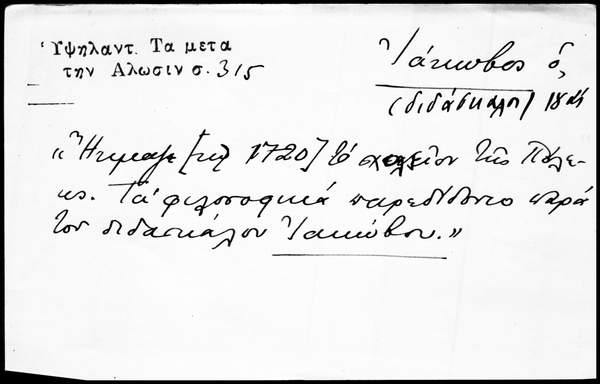 Ὑψηλαντ. Τα μετα
την Αλωσιν σ. 315
Ἰάκωβος ὁ,
(διδάσκαλος) 18
«Ἤκμαζε [τῷ 1720] τὸ σχολεῖον τῆς Πόλε-
ως. Τὰ φιλοσοφικὰ παρεδίδοντο παρὰ
τοῦ διδασκάλου Ἰακώβου.»